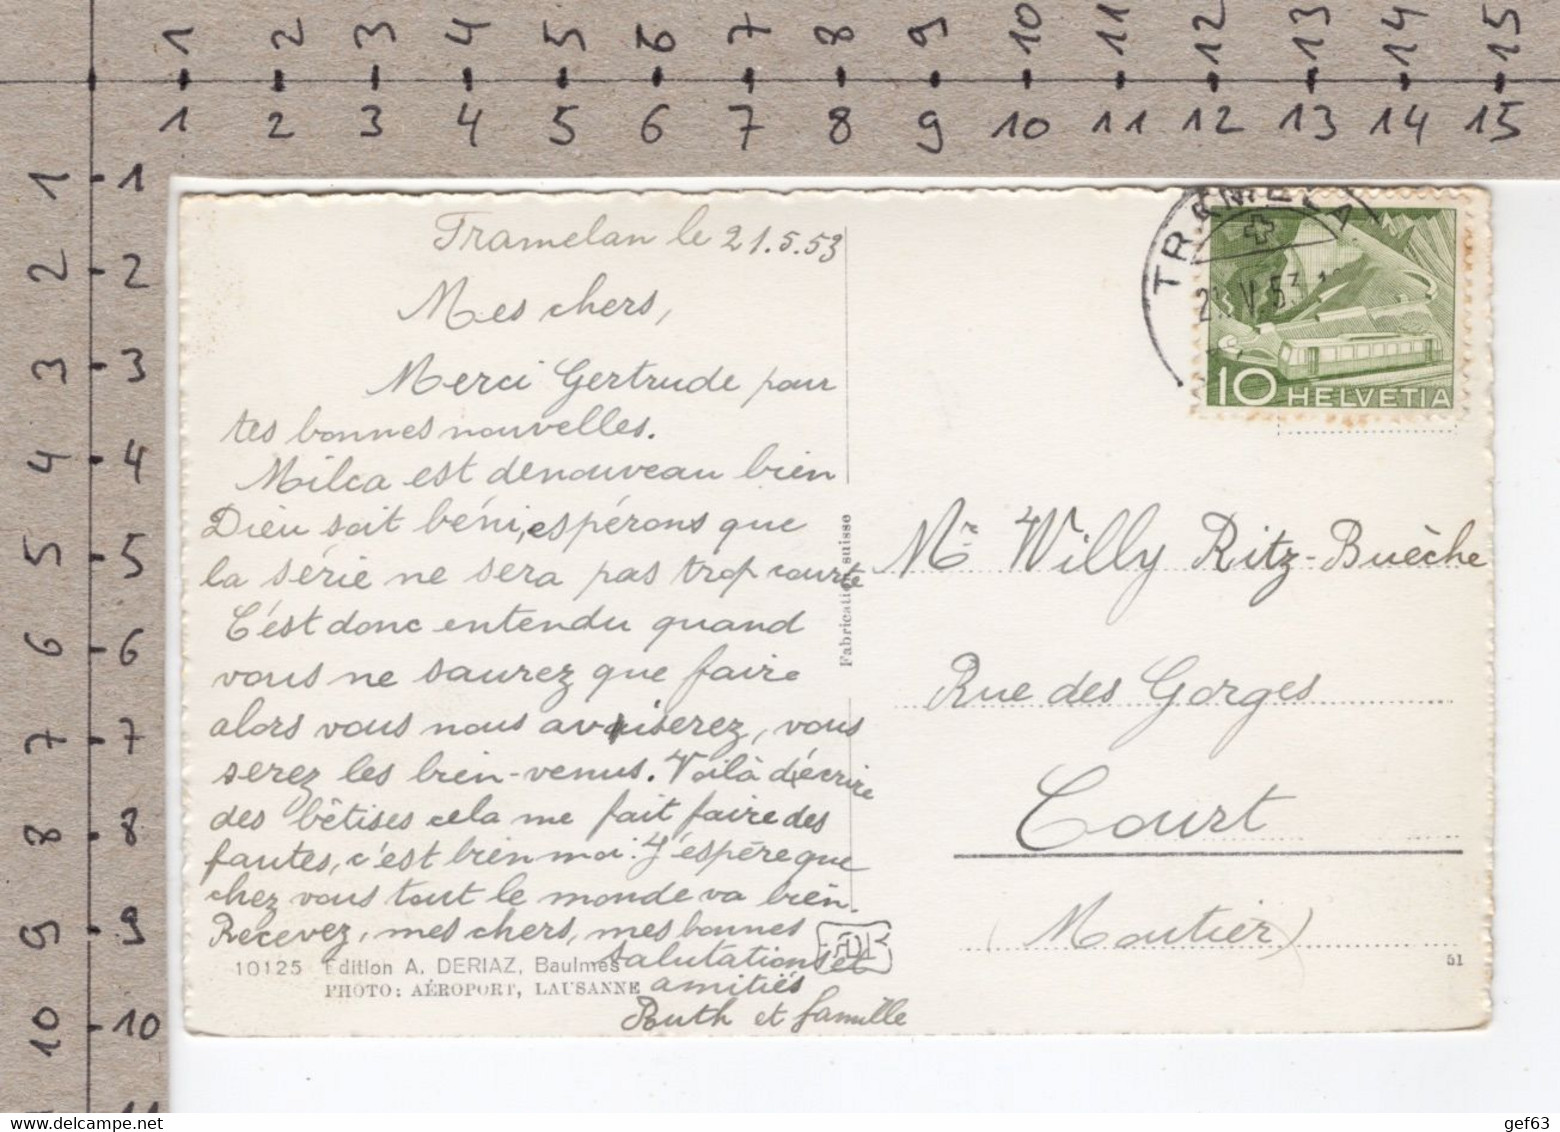 1 2 3 4 5 6 7 8 9 10 11 12 13 14 15
1 2 3 4 5 6 7 8 9 10 11 12 13 14 15
1 1
2 2
3 3
4 4
5 5
6 6
7 7
8 8
9 9
10 10
11
Tramelan le 21.5.53
Mes chers,
Merci Gertrude pour
tes bonnes nouvelles.
Milca est denouveau bien
Dieu soit béni, espérons que
la série ne sera pas trop courte
C'est donc entendu quand
vous ne saurez que faire
alors vous nous aviserez, vous
serez les bien-venus. Voilà d'écrire
des bêtises cela me fait faire des
fautes, c'est bien moi. J'espère que
chez vous tout le monde va bien.
Recevez, mes chers, mes bonnes
salutations et
amitiés
Ruth et famille
10125 Edition A. DERIAZ, Baulmes
PHOTO: AÉROPORT, LAUSANNE
Fabrication suisse
TRAMELA
21.V.53
10 HELVETIA
Mr Willy Ritz-Buèche
Rue des Gorges
Court
(Moutier)
51
gef63